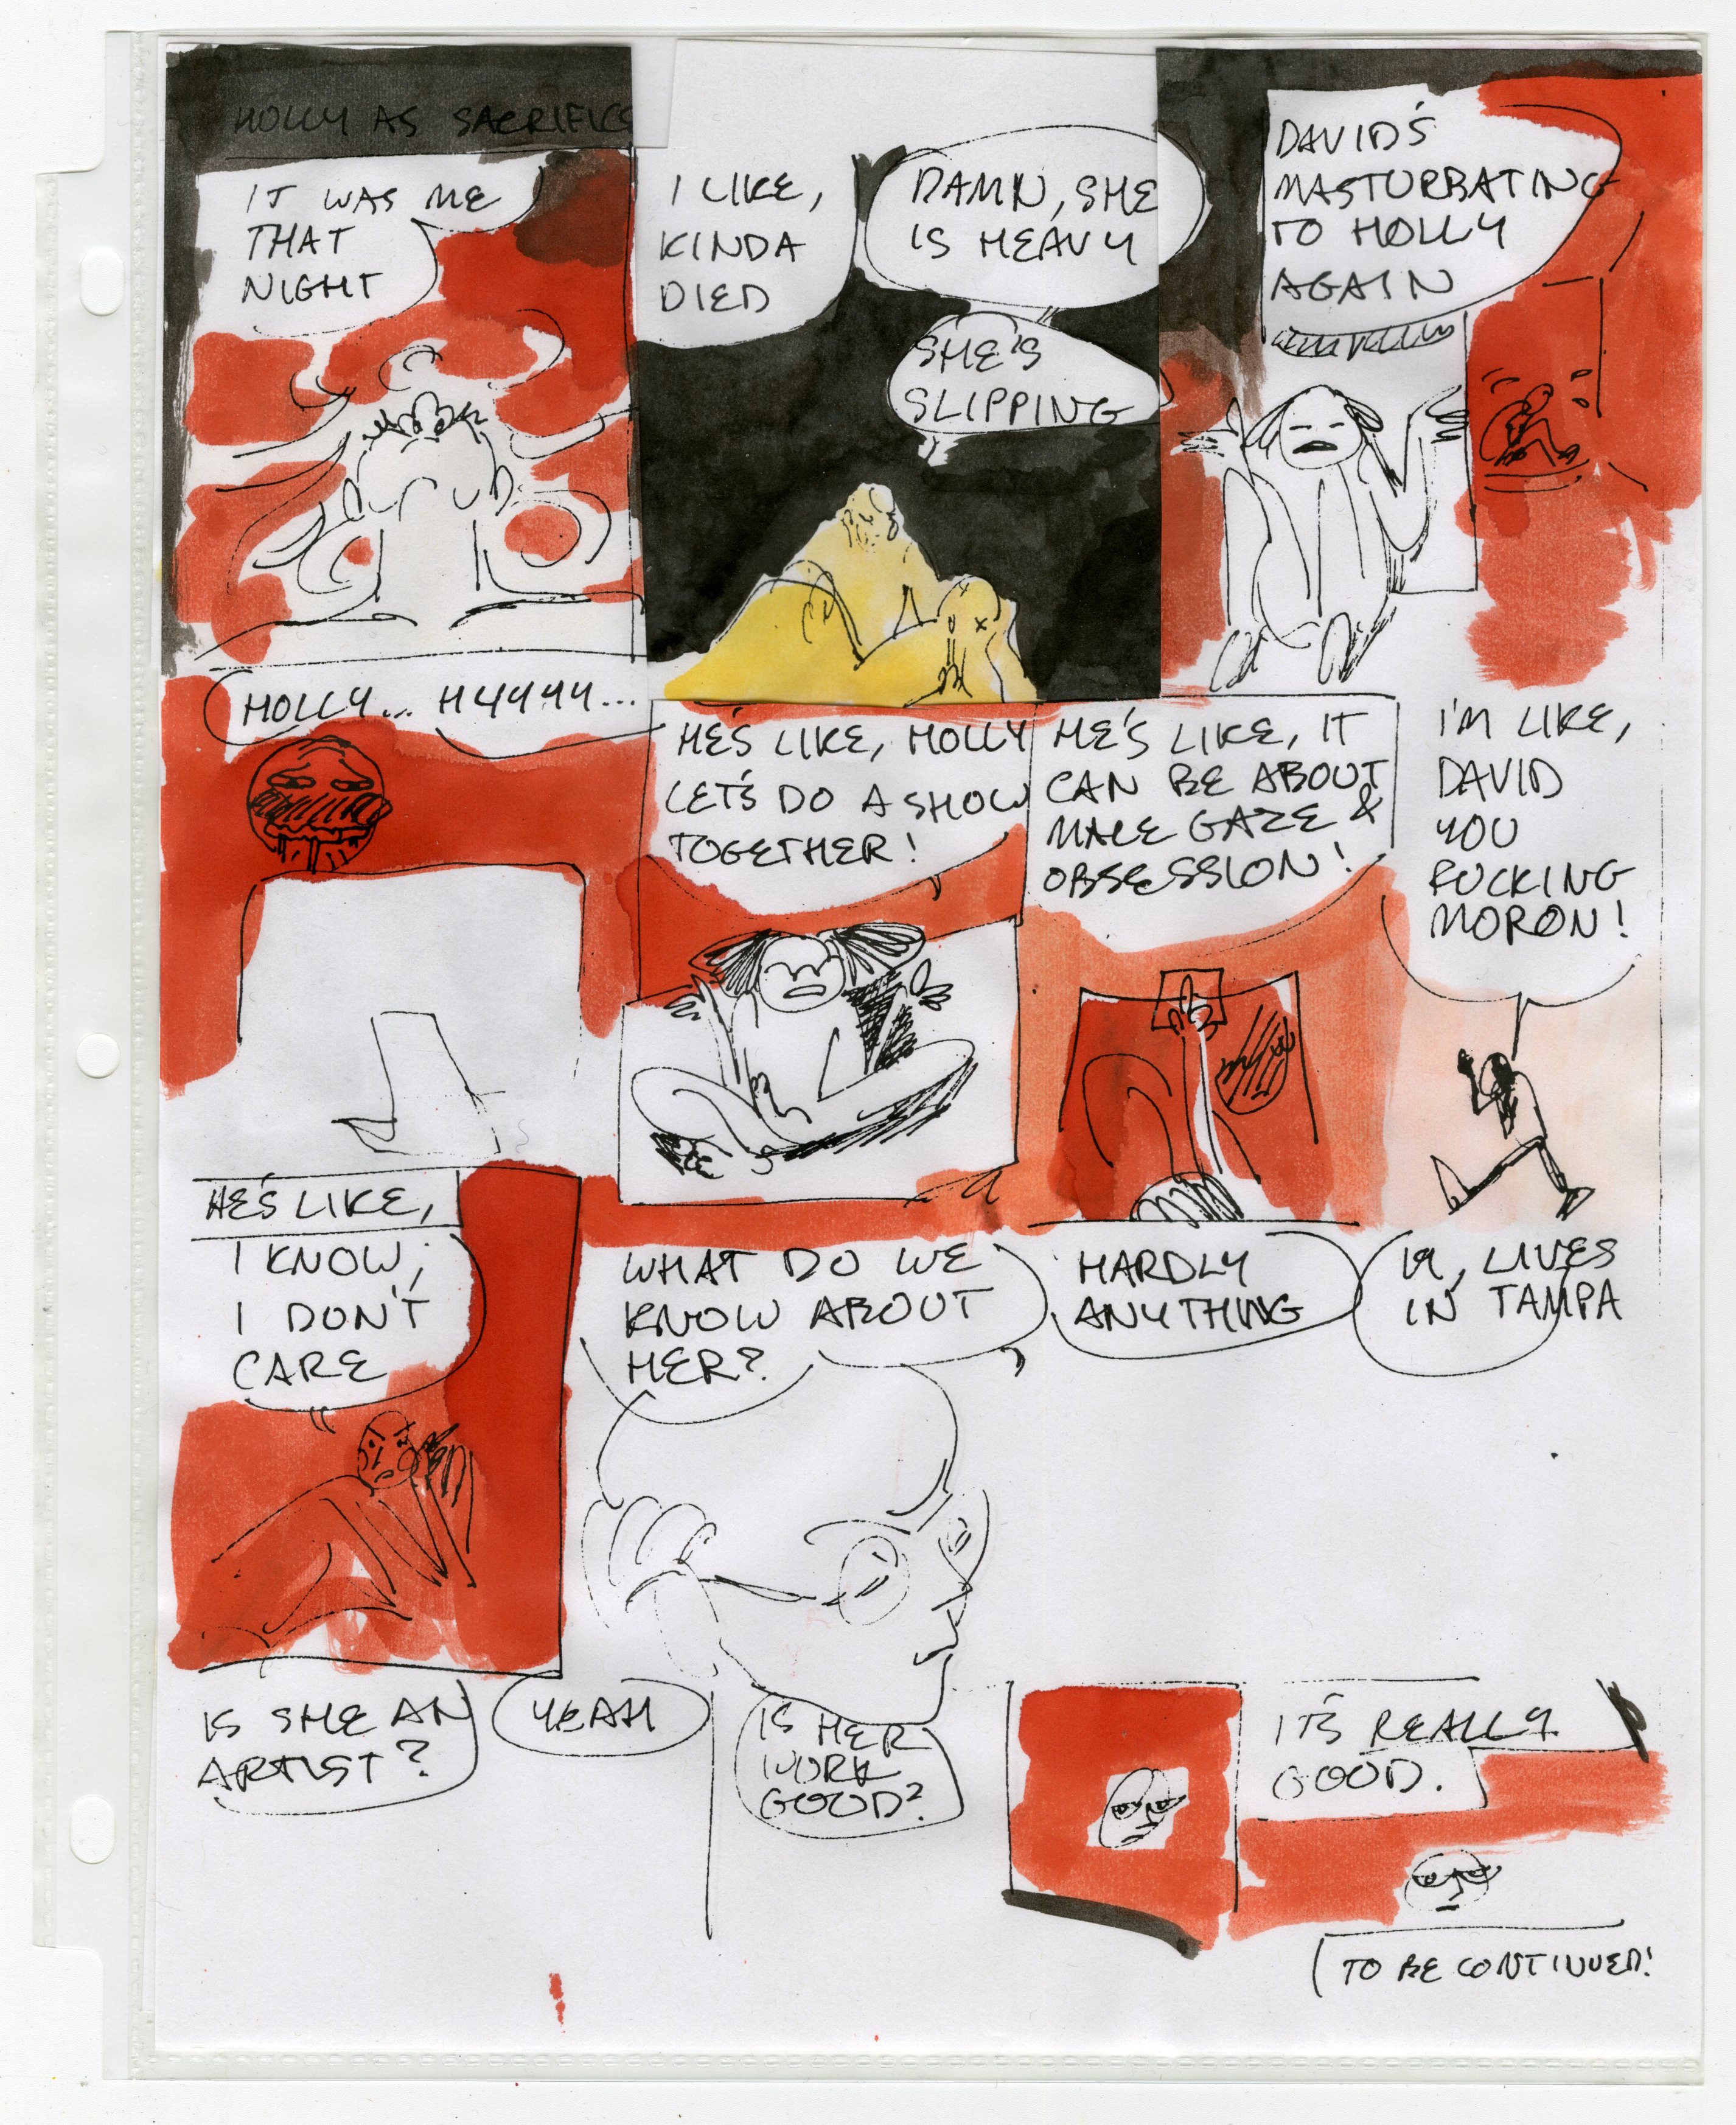 HOLLY AS SACRIFICE
IT WAS ME
THAT
NIGHT
I LIKE,
KINDA
DIED
DAMN, SHE
IS HEAVY
SHE'S
SLIPPING
DAVID'S
MASTURBATING
TO HOLLY
AGAIN
HOLLY... HYYYY...
HE'S LIKE, HOLLY
LET'S DO A SHOW
TOGETHER!
HE'S LIKE, IT
CAN BE ABOUT
MALE GAZE &
OBSESSION!
I'M LIKE,
DAVID
YOU
FUCKING
MORON!
HE'S LIKE,
I KNOW,
I DON'T
CARE
WHAT DO WE
KNOW ABOUT
HER?
HARDLY
ANYTHING
19, LIVES
IN TAMPA
IS SHE AN
ARTIST?
YEAH
IS HER
WORK
GOOD?
IT'S REALLY
GOOD.
TO BE CONTINUED!